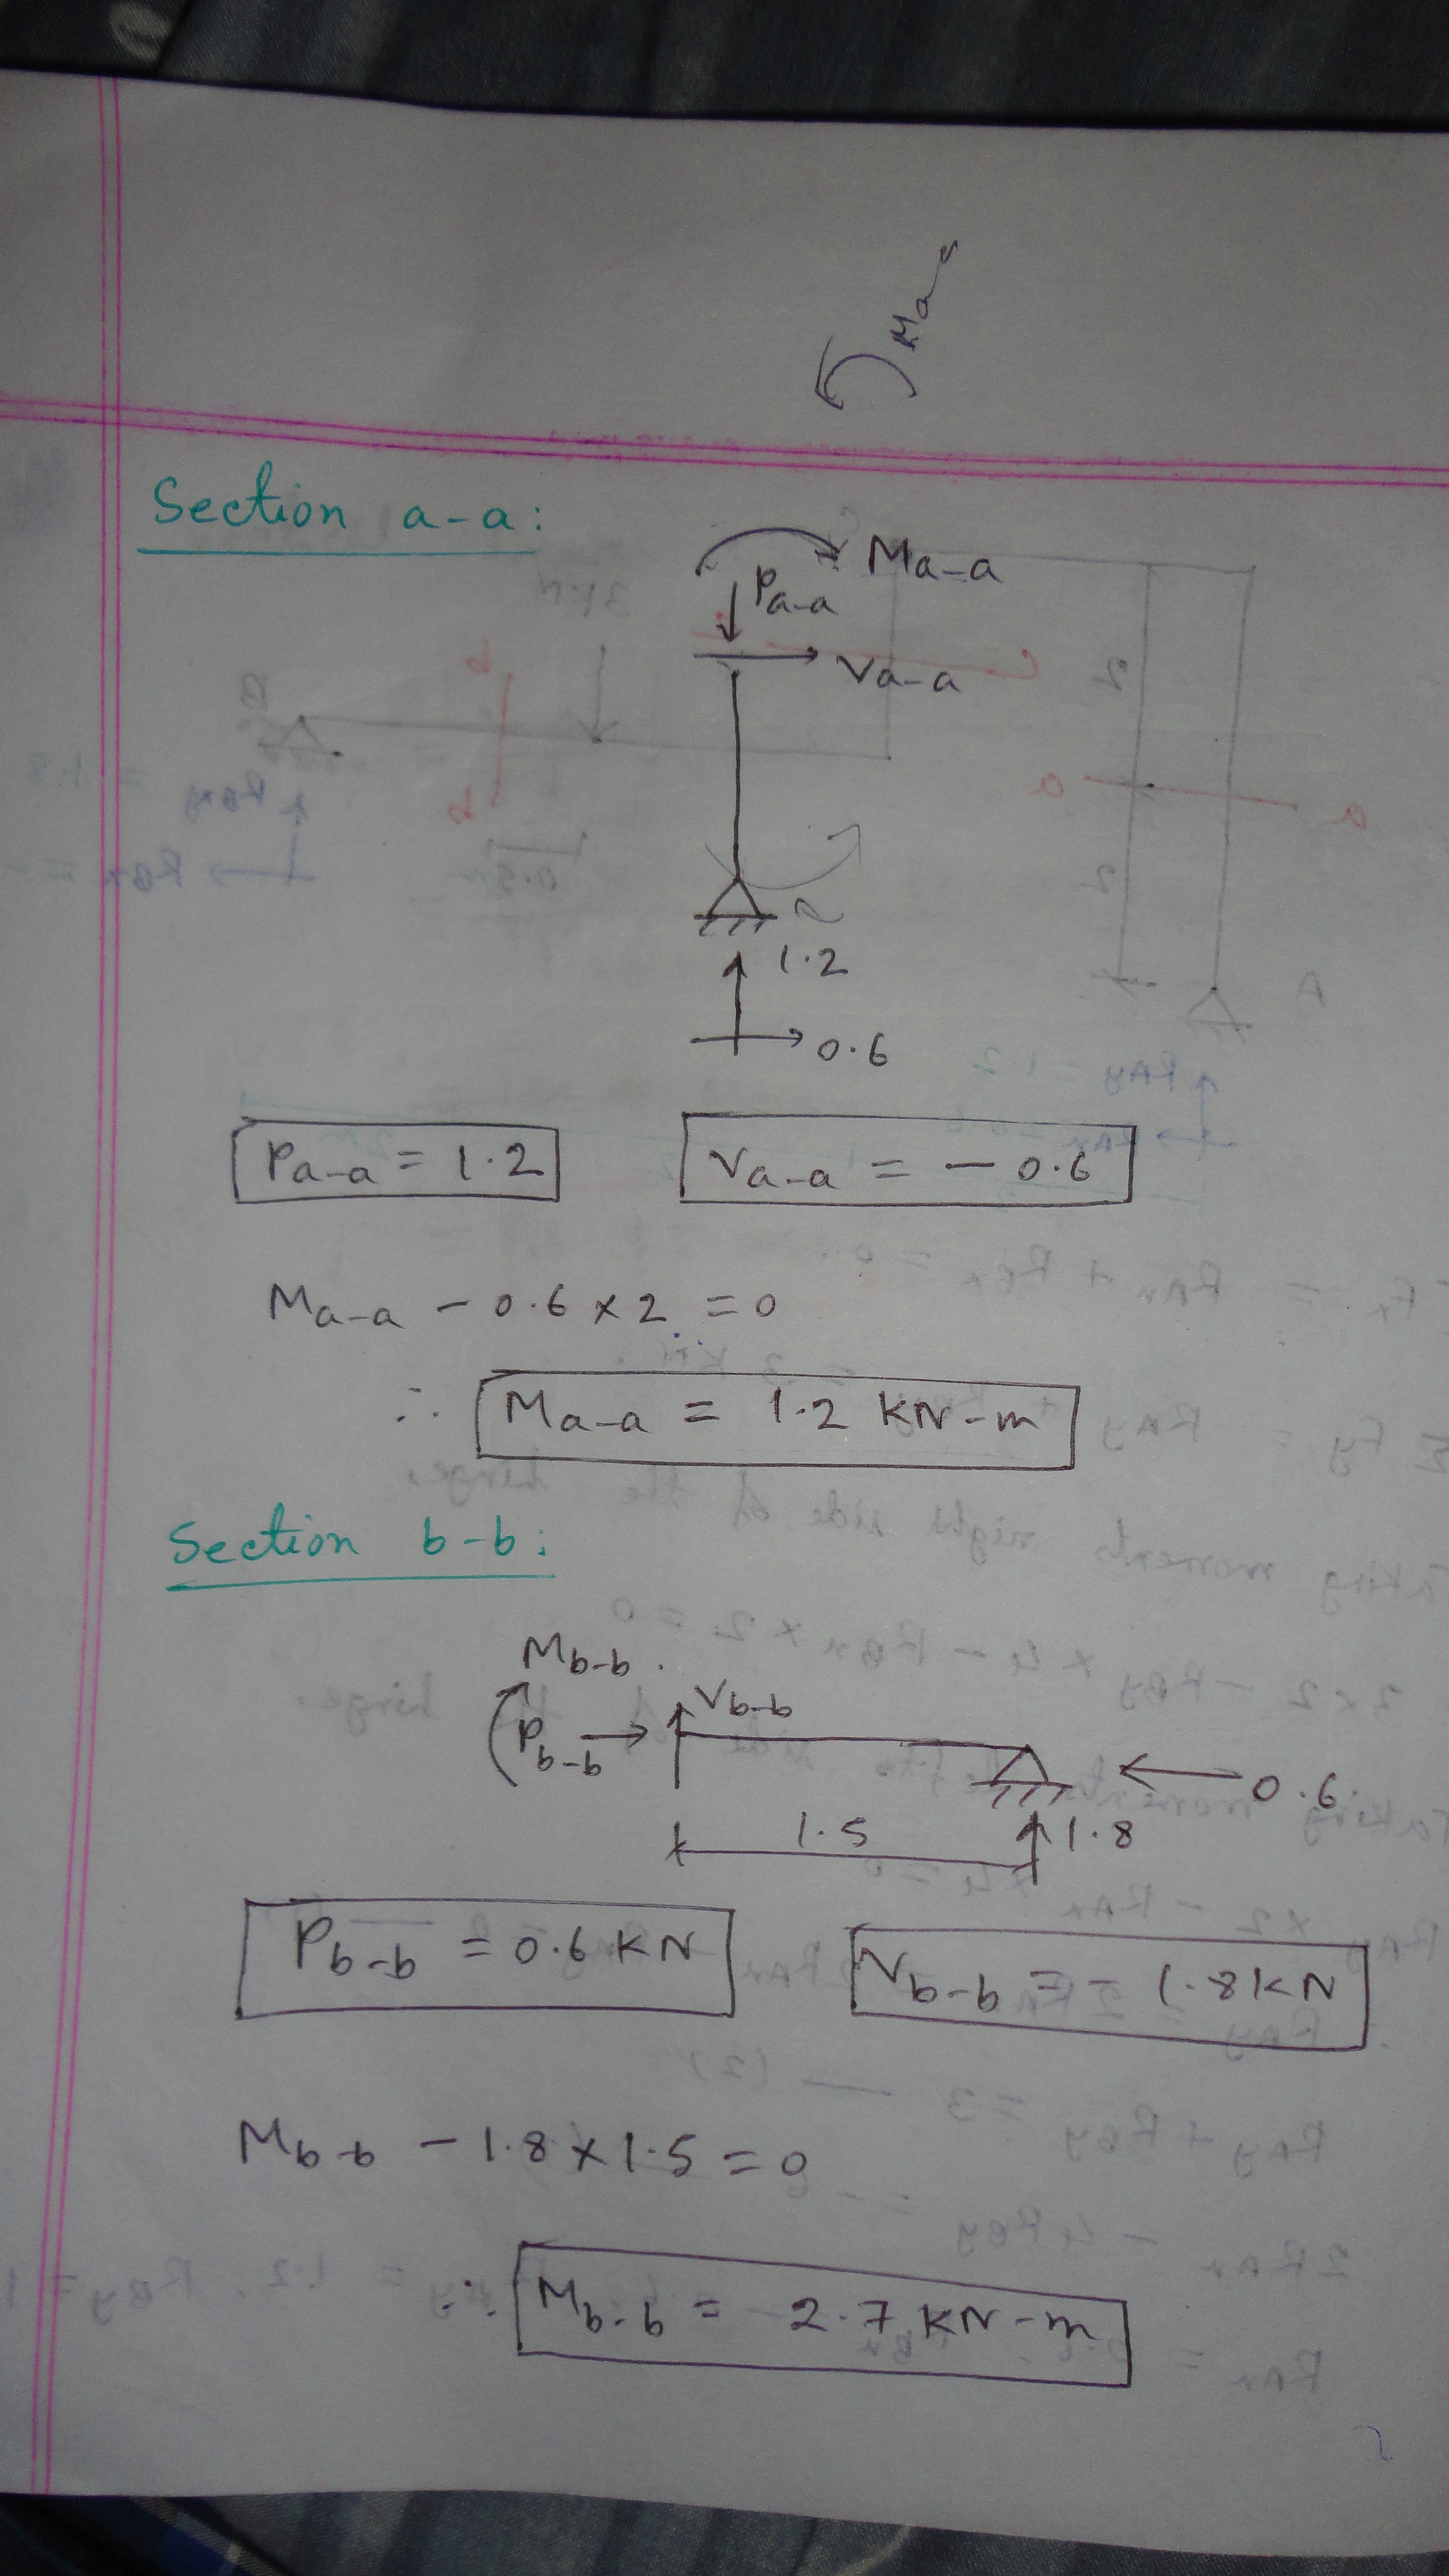 Ma
Section a-a:
Ma-a
Pa-a
Va-a
1.2
0.6
Pa-a = 1.2
Va-a = - 0.6
Ma-a - 0.6 x 2 = 0
∴ Ma-a = 1.2 KN-m
Section b-b:
Mb-b
Vb-b
Pb-b
0.6
1.5
1.8
Pb-b = 0.6 KN
Vb-b = - 1.8 KN
Mb-b - 1.8 x 1.5 = 0
∴ Mb-b = 2.7 KN-m